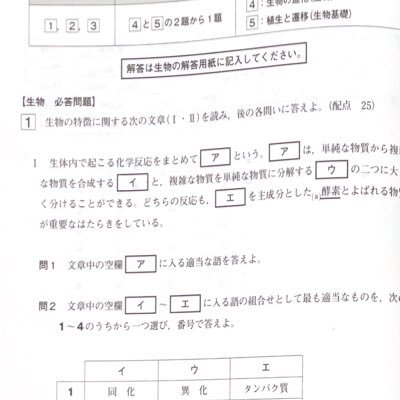 1, 2, 3 4と5の2題から1題
4:
5:植生と遷移(生物基礎)
解答は生物の解答用紙に記入してください。
【生物 必答問題】
1 生物の特徴に関する次の文章(Ⅰ・Ⅱ)を読み、後の各問いに答えよ。(配点 25)
Ⅰ 生体内で起こる化学反応をまとめて ア という。 ア は、単純な物質から複
な物質を合成する イ と、複雑な物質を単純な物質に分解する ウ の二つに大
く分けることができる。どちらの反応も、 エ を主成分とした(a)酵素とよばれる物
が重要なはたらきをしている。
問1 文章中の空欄 ア に入る適当な語を答えよ。
問2 文章中の空欄 イ ~ エ に入る語の組合せとして最も適当なものを、次の
1~4のうちから一つ選び、番号で答えよ。
イ ウ エ
1 同化 異化 タンパク質